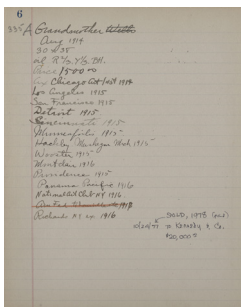 6
335 Grandmother
Aug 1914
30 x 35
Price 1500 00
Chicago Art Inst 1914
Los Angeles 1915
San Francisco 1915
Detroit 1915
Cincinnati 1915
Minneapolis 1915
Hackley Muskegon Mich 1915
Worcester 1915
Montclair 1916
Providence 1915
Panama Pacific 1916
National Art Club NY 1916
1917
Richards N.Y. 1916
SOLD, 1978
10/20/77 to & Co.
$20,000